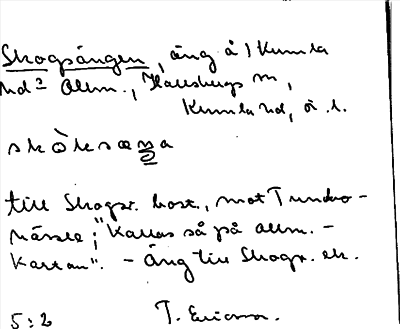 Skogsängen, äng å 1 Kumla
hd³ allm., Hallsbergs m,
Kumla hd, ö. l.
skòksæŋa
till Skogs. bost., mot
"Kallas så på allm. -
kartan". - Äng till Skogs. ek.
5:2 T. Ericson.